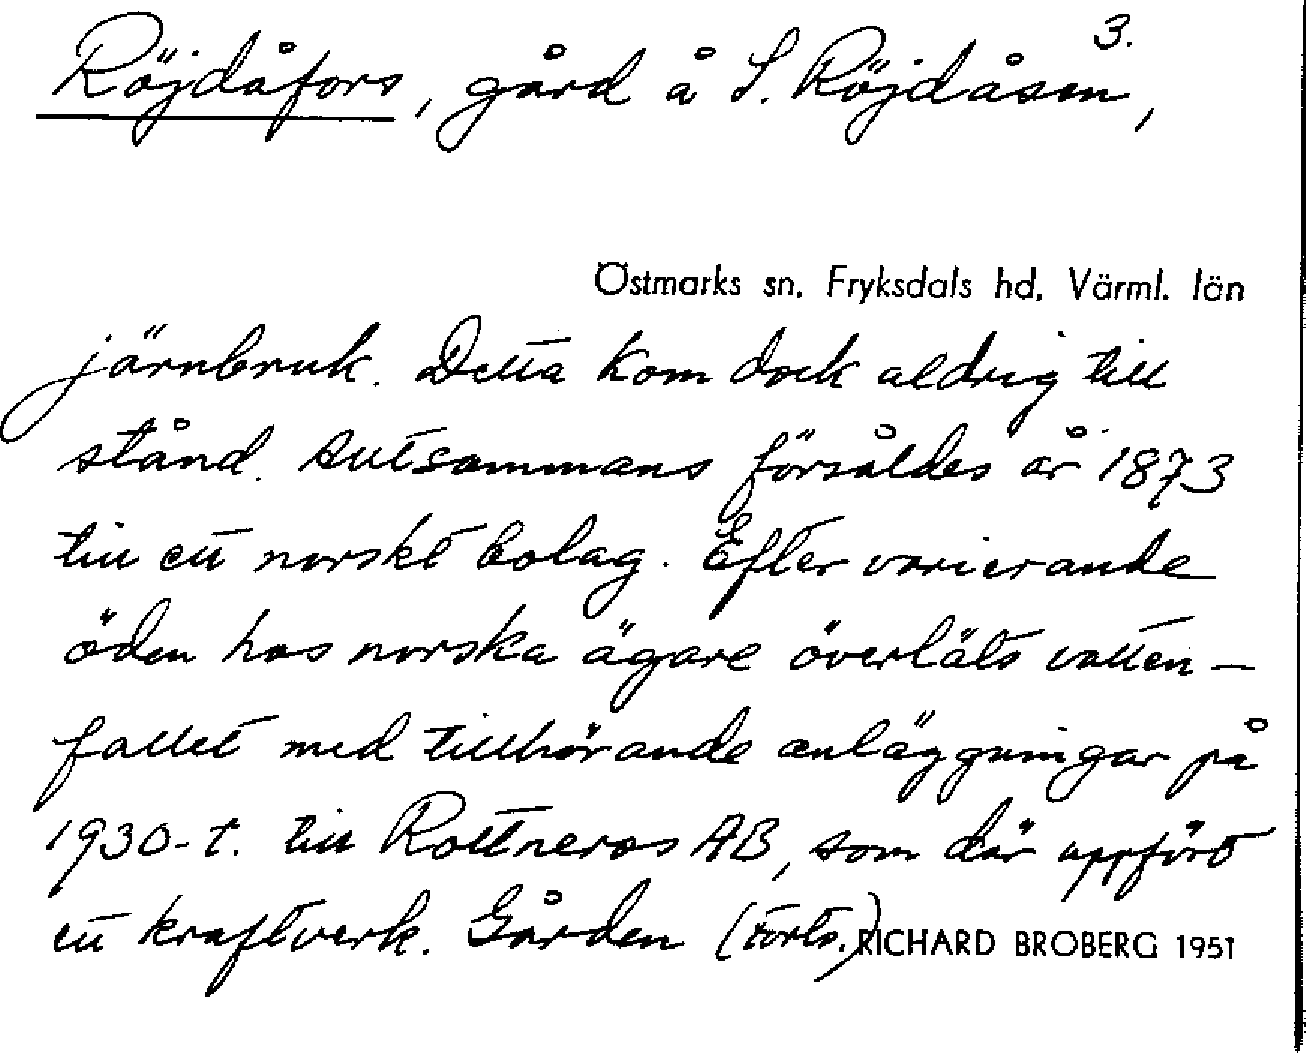 3.
Röjdåfors, gård å S. Röjdåsen,
Östmarks sn. Fryksdals hd. Värml. län
järnbruk. Detta kom dock aldrig till
stånd. Alltsammans försåldes år 1873
till ett norskt bolag. Efter varierande
öden hos norska ägare överläts vatten-
fallet med tillhörande anläggningar på
1930-t. till Rottneros AB, som där uppfört
ett kraftverk. Gården (forts.)
RICHARD BROBERG 1951